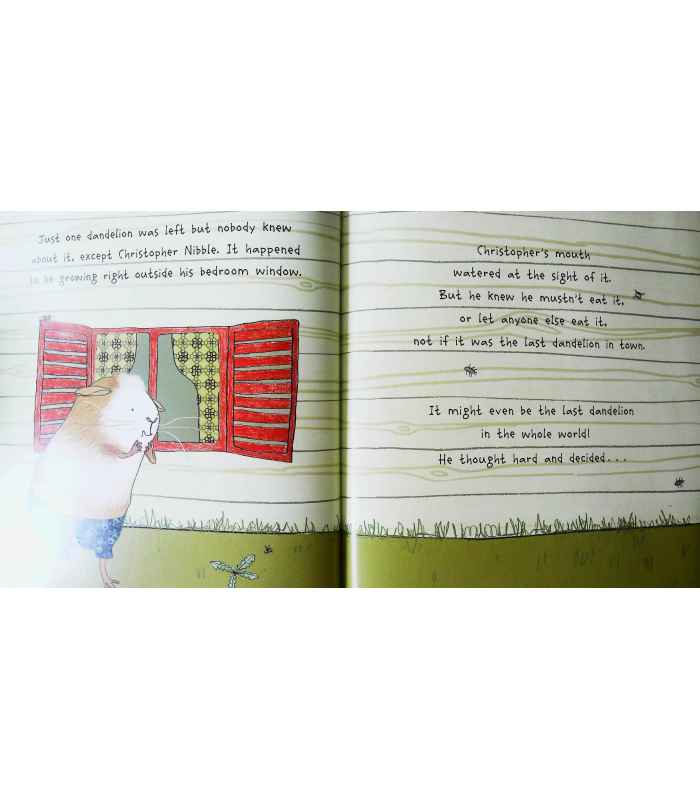 Just one dandelion was left but nobody knew
about it, except Christopher Nibble. It happened
to be growing right outside his bedroom window.
Christopher's mouth
watered at the sight of it.
But he knew he mustn't eat it,
or let anyone else eat it,
not if it was the last dandelion in town.
It might even be the last dandelion
in the whole world!
He thought hard and decided...